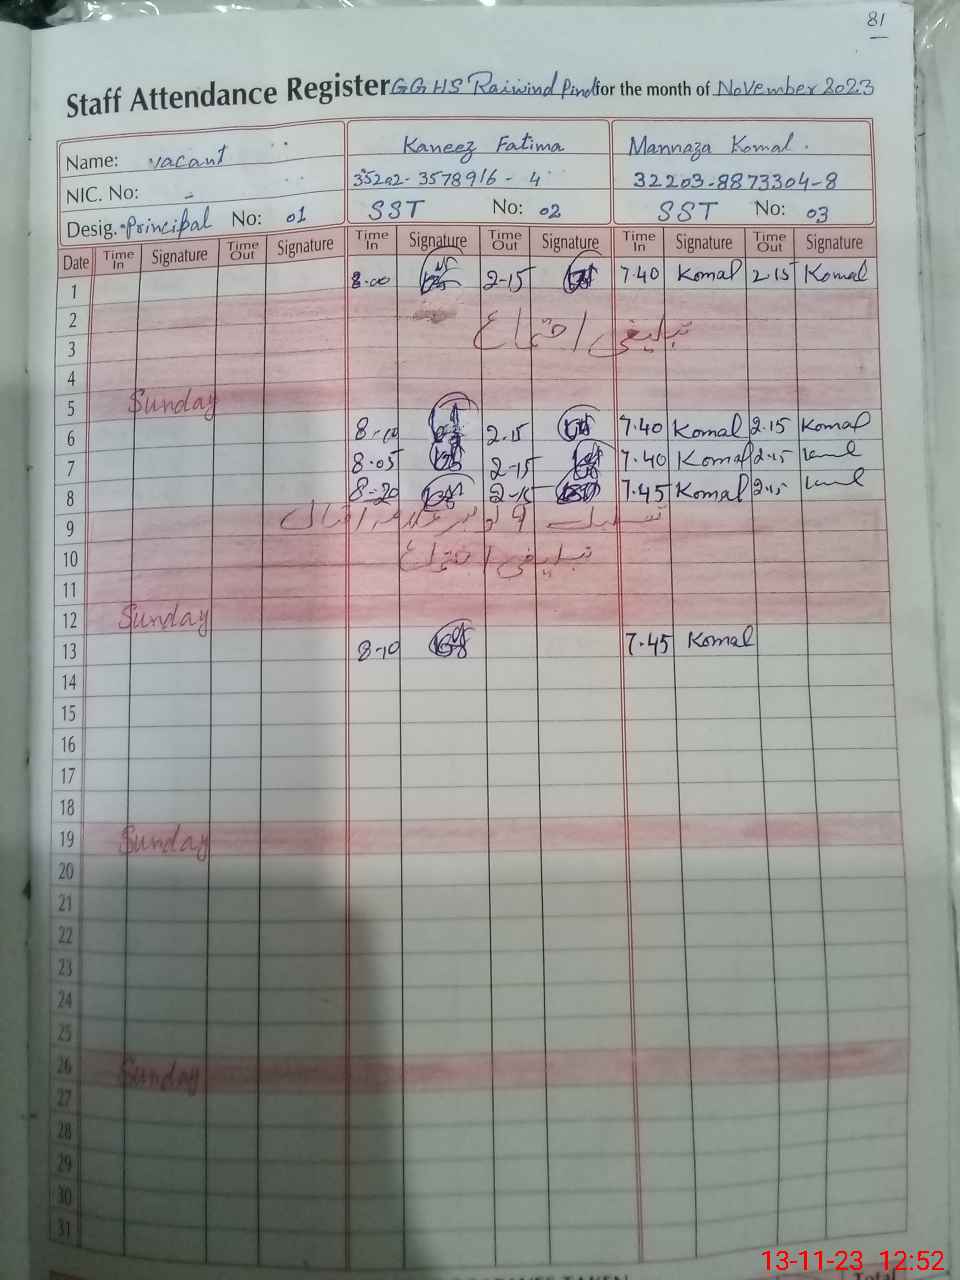 81
Staff Attendance Register GGHS Raiwind Pind for the month of November 2023
Name: vacant Kaneez Fatima Mannaza Komal.
NIC. No: - 35202-3578916-4 32203-8873304-8
Desig. Principal No: 01 SST No: 02 SST No: 03
Date Time In Signature Time Out Signature Time In Signature Time Out Signature Time In Signature Time Out Signature
1 8.00 2-15 7.40 Komal 2.15 Komal
2 تبلیغی اجتماع
3
4
5 Sunday
6 8-10 2.15 7.40 Komal 2.15 Komal
7 8.05 2-15 7.40 Komal 2.15
8 8-20 2-15 7.45 Komal 2.15
9 9 نومبر علامہ اقبال
10 تبلیغی اجتماع
11
12 Sunday
13 8-10 7.45 Komal
14
15
16
17
18
19 Sunday
20
21
22
23
24
25
26 Sunday
27
28
29
30
31
13-11-23 12:52